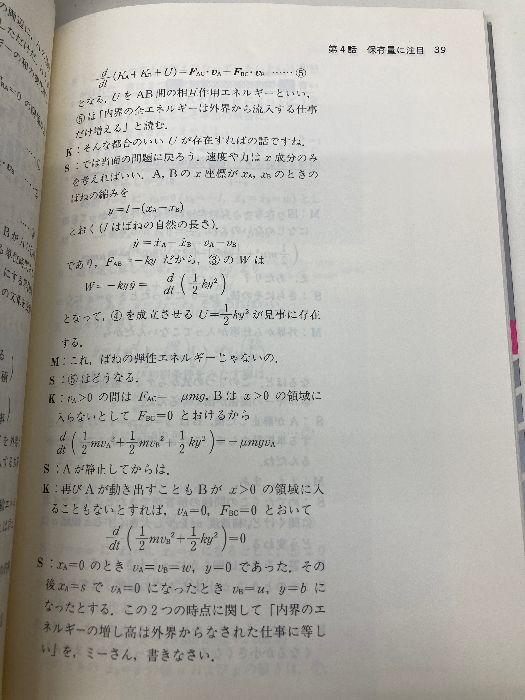 第4話　保存量に注目　39
d/dt(K_A+K_B+U)=F_AC・v_A+F_BC・v_B ……⑤
となる．U を AB 間の相互作用エネルギーといい，
⑤は「内界の全エネルギーは外界から流入する仕事
だけ増える」と読む．
K：そんな都合のいい U が存在すればの話ですね．
S：では当面の問題に戻ろう．速度や力は x 成分のみ
を考えればいい．A, B の x 座標が x_A, x_B のときの
ばねの縮みを
y=l−(x_A−x_B)
とおく(l はばねの自然の長さ)．
ẏ=−ẋ_A+ẋ_B=−v_A+v_B
であり，F_AB=−ky だから，③の W は
W=−kyẏ=−d/dt(1/2 ky²)
となって，④を成立させる U=1/2 ky² が見事に存在
する．
M：これ，ばねの弾性エネルギーじゃないの．
S：⑤はどうなる．
K：v_A>0 の間は F_AC=−μmg, B は x>0 の領域に
入らないとして F_BC=0 とおけるから
d/dt(1/2 mv_A²+1/2 mv_B²+1/2 ky²)=−μmgv_A
S：A が静止してからは．
K：再び A が動き出すことも B が x>0 の領域に入
ることもないとすれば，v_A=0, F_BC=0 とおいて
d/dt(1/2 mv_B²+1/2 ky²)=0
S：x_A=0 のとき v_A=v_B=w, y=0 であった．その
後 x_A=s で v_A=0 になったとき v_B=u, y=b に
なったとする．この2つの時点に関して「内界のエ
ネルギーの増し高は外界からなされた仕事に等し
い」を，ミーさん，書きなさい．